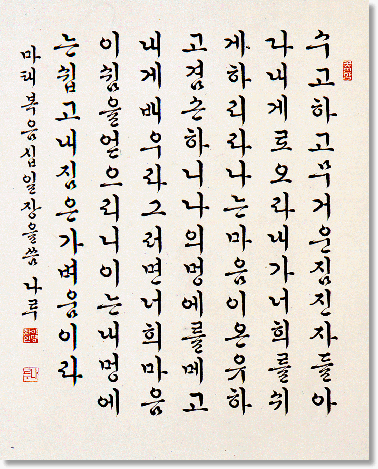 수고하고무거운짐진자들아
다내게로오라내가너희를쉬
게하리라나는마음이온유하
고겸손하니나의멍에를메고
내게배우라그러면너희마음
이쉼을얻으리니이는내멍에
는쉽고내짐은가벼움이라
마태복음십일장을씀 나루